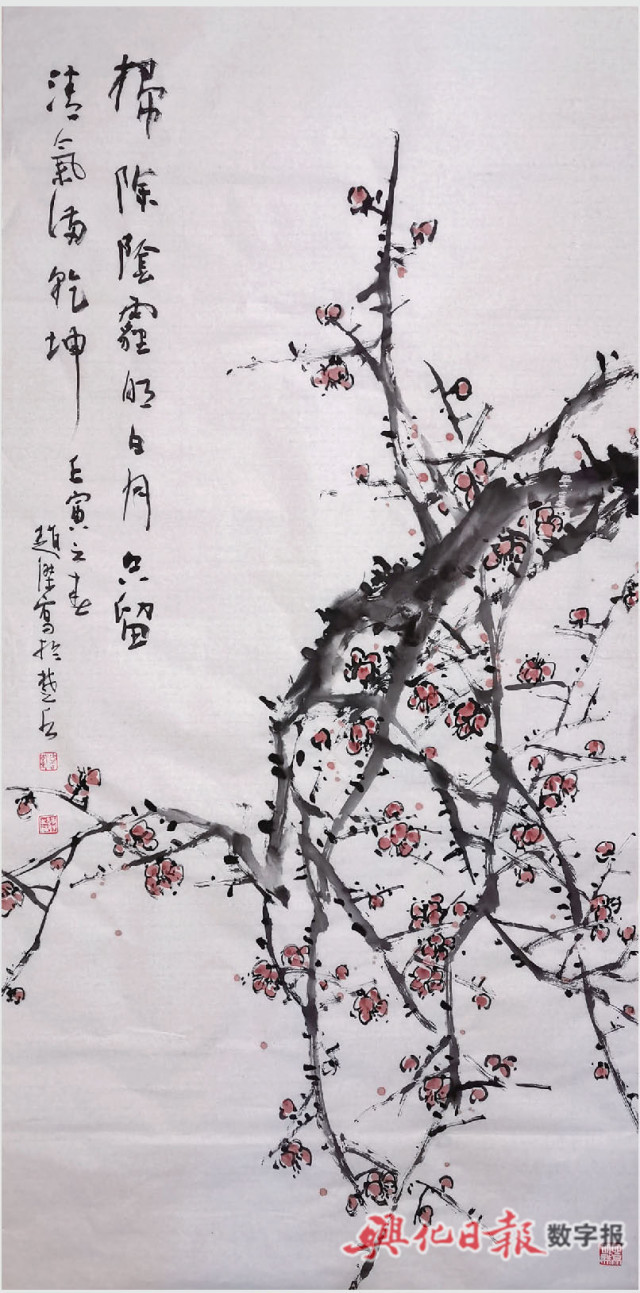 掃除陰霾明日月只留
清氣滿乾坤
壬寅之春
趙傑寫於楚水
興化日報 数字报